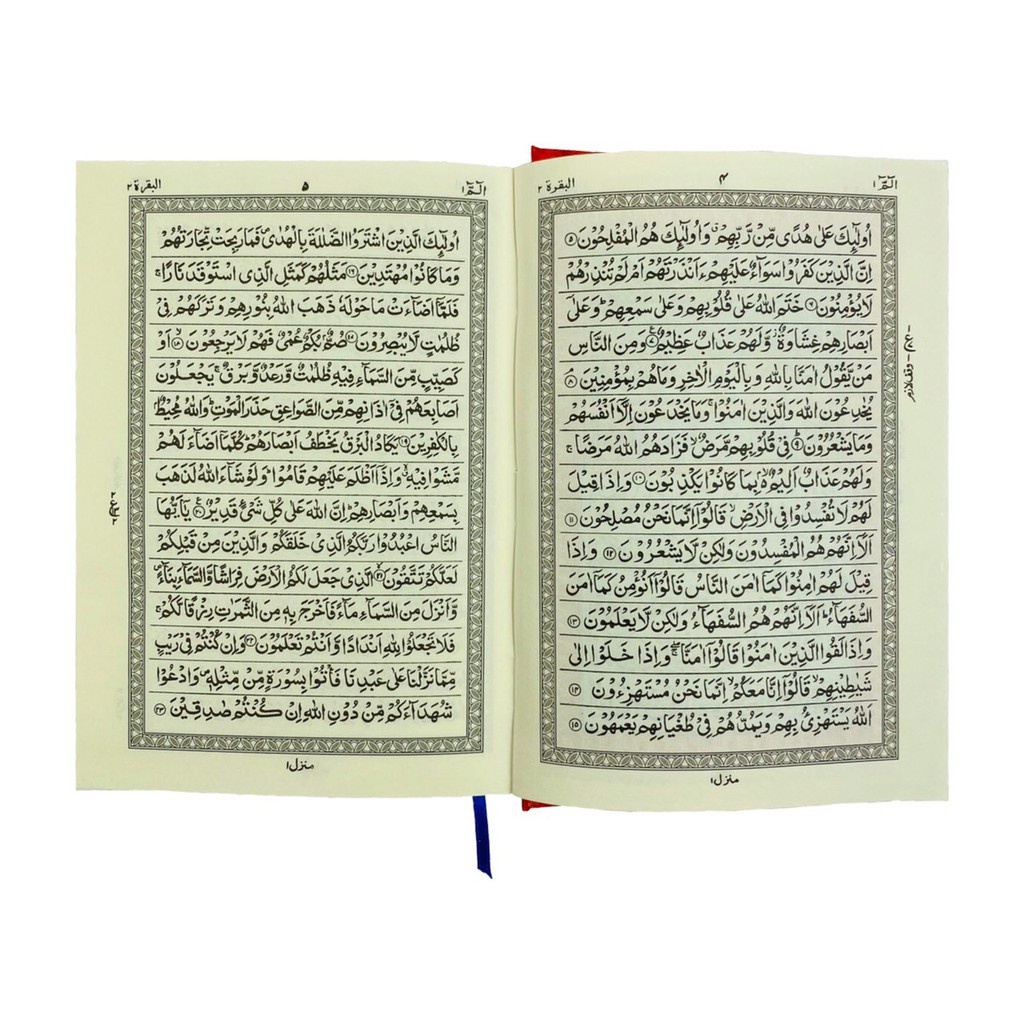 الٓمّٓ ١
۴
البقرة ٢
اُولٰٓئِكَ عَلٰى هُدًى مِّنْ رَّبِّهِمْ ۙ وَاُولٰٓئِكَ هُمُ الْمُفْلِحُوْنَ ٥
اِنَّ الَّذِيْنَ كَفَرُوْا سَوَآءٌ عَلَيْهِمْ ءَاَنْذَرْتَهُمْ اَمْ لَمْ تُنْذِرْهُمْ
لَا يُؤْمِنُوْنَ ٦ خَتَمَ اللّٰهُ عَلٰى قُلُوْبِهِمْ وَعَلٰى سَمْعِهِمْ ۭ وَعَلٰٓى
اَبْصَارِهِمْ غِشَاوَةٌ ۡ وَّلَهُمْ عَذَابٌ عَظِيْمٌ ٧ وَمِنَ النَّاسِ
مَنْ يَّقُوْلُ اٰمَنَّا بِاللّٰهِ وَبِالْيَوْمِ الْاٰخِرِ وَمَا هُمْ بِمُؤْمِنِيْنَ ٨
يُخٰدِعُوْنَ اللّٰهَ وَالَّذِيْنَ اٰمَنُوْا ۚ وَمَا يَخْدَعُوْنَ اِلَّآ اَنْفُسَهُمْ
وَمَا يَشْعُرُوْنَ ٩ فِيْ قُلُوْبِهِمْ مَّرَضٌ ۙ فَزَادَهُمُ اللّٰهُ مَرَضًا ۚ
وَلَهُمْ عَذَابٌ اَلِيْمٌۢ ۙ بِمَا كَانُوْا يَكْذِبُوْنَ ١٠ وَاِذَا قِيْلَ
لَهُمْ لَا تُفْسِدُوْا فِي الْاَرْضِ ۙ قَالُوْٓا اِنَّمَا نَحْنُ مُصْلِحُوْنَ ١١
اَلَآ اِنَّهُمْ هُمُ الْمُفْسِدُوْنَ وَلٰكِنْ لَّا يَشْعُرُوْنَ ١٢ وَاِذَا
قِيْلَ لَهُمْ اٰمِنُوْا كَمَآ اٰمَنَ النَّاسُ قَالُوْٓا اَنُؤْمِنُ كَمَآ اٰمَنَ
السُّفَهَآءُ ۭ اَلَآ اِنَّهُمْ هُمُ السُّفَهَآءُ وَلٰكِنْ لَّا يَعْلَمُوْنَ ١٣
وَاِذَا لَقُوا الَّذِيْنَ اٰمَنُوْا قَالُوْٓا اٰمَنَّا ۚ وَاِذَا خَلَوْا اِلٰى
شَيٰطِيْنِهِمْ ۙ قَالُوْٓا اِنَّا مَعَكُمْ ۙ اِنَّمَا نَحْنُ مُسْتَهْزِءُوْنَ ١٤
اَللّٰهُ يَسْتَهْزِئُ بِهِمْ وَيَمُدُّهُمْ فِيْ طُغْيَانِهِمْ يَعْمَهُوْنَ ١٥
منزل ١
الٓمّٓ ١
۵
البقرة ٢
اُولٰٓئِكَ الَّذِيْنَ اشْتَرَوُا الضَّلٰلَةَ بِالْهُدٰى ۠ فَمَا رَبِحَتْ تِّجَارَتُهُمْ
وَمَا كَانُوْا مُهْتَدِيْنَ ١٦ مَثَلُهُمْ كَمَثَلِ الَّذِي اسْتَوْقَدَ نَارًا ۚ
فَلَمَّآ اَضَآءَتْ مَا حَوْلَهٗ ذَهَبَ اللّٰهُ بِنُوْرِهِمْ وَتَرَكَهُمْ فِيْ
ظُلُمٰتٍ لَّا يُبْصِرُوْنَ ١٧ صُمٌّۢ بُكْمٌ عُمْيٌ فَهُمْ لَا يَرْجِعُوْنَ ١٨ اَوْ
كَصَيِّبٍ مِّنَ السَّمَآءِ فِيْهِ ظُلُمٰتٌ وَّرَعْدٌ وَّبَرْقٌ ۚ يَجْعَلُوْنَ
اَصَابِعَهُمْ فِيْٓ اٰذَانِهِمْ مِّنَ الصَّوَاعِقِ حَذَرَ الْمَوْتِ ۭ وَاللّٰهُ مُحِيْطٌۢ
بِالْكٰفِرِيْنَ ١٩ يَكَادُ الْبَرْقُ يَخْطَفُ اَبْصَارَهُمْ ۭ كُلَّمَآ اَضَآءَ لَهُمْ
مَّشَوْا فِيْهِ ۙ وَاِذَآ اَظْلَمَ عَلَيْهِمْ قَامُوْا ۭ وَلَوْ شَآءَ اللّٰهُ لَذَهَبَ
بِسَمْعِهِمْ وَاَبْصَارِهِمْ ۭ اِنَّ اللّٰهَ عَلٰى كُلِّ شَيْءٍ قَدِيْرٌ ٢٠ يٰٓاَيُّهَا
النَّاسُ اعْبُدُوْا رَبَّكُمُ الَّذِيْ خَلَقَكُمْ وَالَّذِيْنَ مِنْ قَبْلِكُمْ
لَعَلَّكُمْ تَتَّقُوْنَ ٢١ الَّذِيْ جَعَلَ لَكُمُ الْاَرْضَ فِرَاشًا وَّالسَّمَآءَ بِنَآءً ۠
وَّاَنْزَلَ مِنَ السَّمَآءِ مَآءً فَاَخْرَجَ بِهٖ مِنَ الثَّمَرٰتِ رِزْقًا لَّكُمْ ۚ
فَلَا تَجْعَلُوْا لِلّٰهِ اَنْدَادًا وَّاَنْتُمْ تَعْلَمُوْنَ ٢٢ وَاِنْ كُنْتُمْ فِيْ رَيْبٍ
مِّمَّا نَزَّلْنَا عَلٰى عَبْدِنَا فَاْتُوْا بِسُوْرَةٍ مِّنْ مِّثْلِهٖ ۠ وَادْعُوْا
شُهَدَآءَكُمْ مِّنْ دُوْنِ اللّٰهِ اِنْ كُنْتُمْ صٰدِقِيْنَ ٢٣
منزل ١